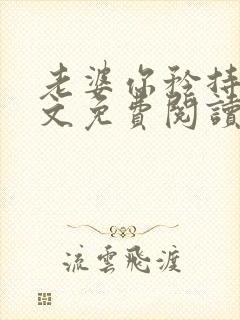 老婆你矜持
文免費閱讀
流雲飛渡